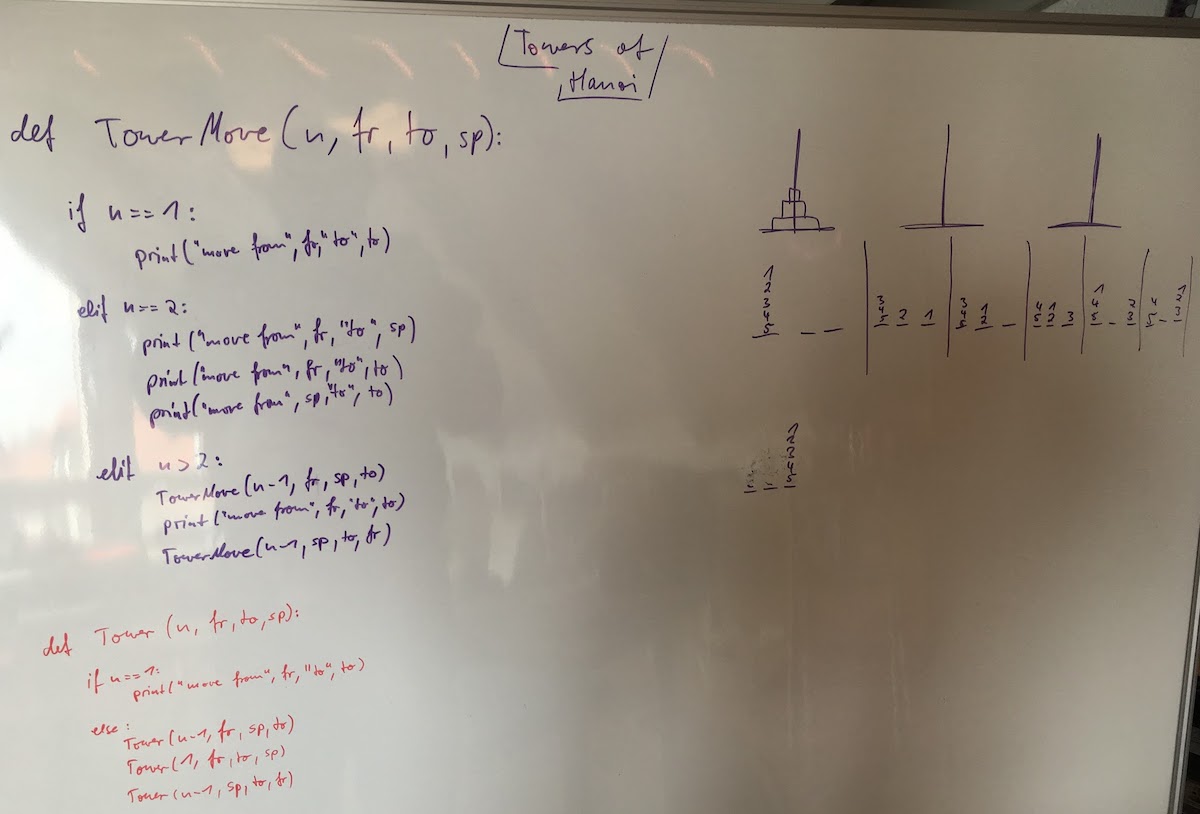 Towers of
Hanoi
def TowerMove(n, fr, to, sp):
if n==1:
print("move from", fr,"to", to)
elif n==2:
print("move from", fr, "to", sp)
print("move from", fr, "to", to)
print("move from", sp,"to", to)
elif n>2:
TowerMove(n-1, fr, sp, to)
print("move from", fr, "to", to)
TowerMove(n-1, sp, to, fr)
def Tower (n, fr, to, sp):
if n==1:
print("move from", fr, "to", to)
else:
Tower(n-1, fr, sp, to)
Tower(1, fr, to, sp)
Tower(n-1, sp, to, fr)
1
2
3
4
5
1
2
3
4
5